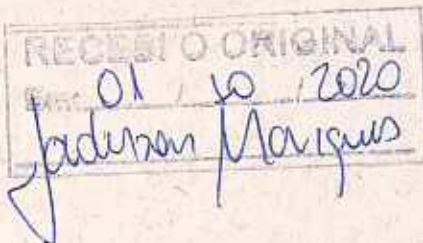 RECEBI O ORIGINAL
Em: 01 / 10 / 2020
Jaderson Marques